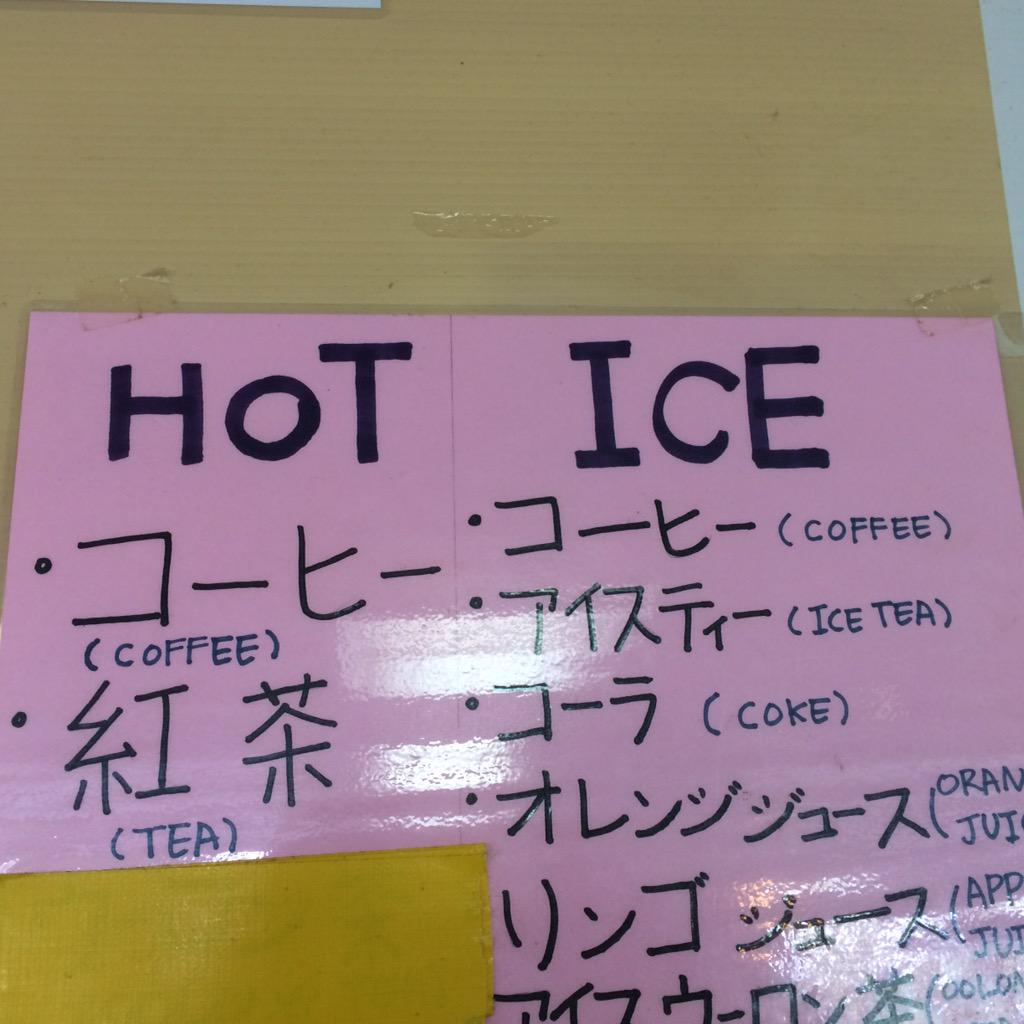 HOT
・コーヒー
(COFFEE)
・紅茶
(TEA)
ICE
・コーヒー (COFFEE)
・アイスティー (ICE TEA)
・コーラ (COKE)
・オレンジジュース
リンゴジュース
アイスウーロン茶